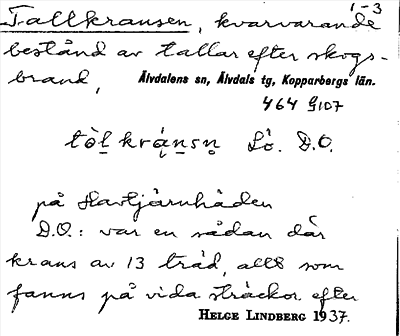 1-3
Tallkransen, kvarvarande
bestånd av tallar efter skogs-
brand,
Älvdalens sn, Älvdals tg, Kopparbergs län.
464 G107
Lö. D.O.
på Havtjärnhåden
D.O.: var en sådan där
krans av 13 träd, allt som
fanns på vida sträckor efter
HELGE LINDBERG 1937.